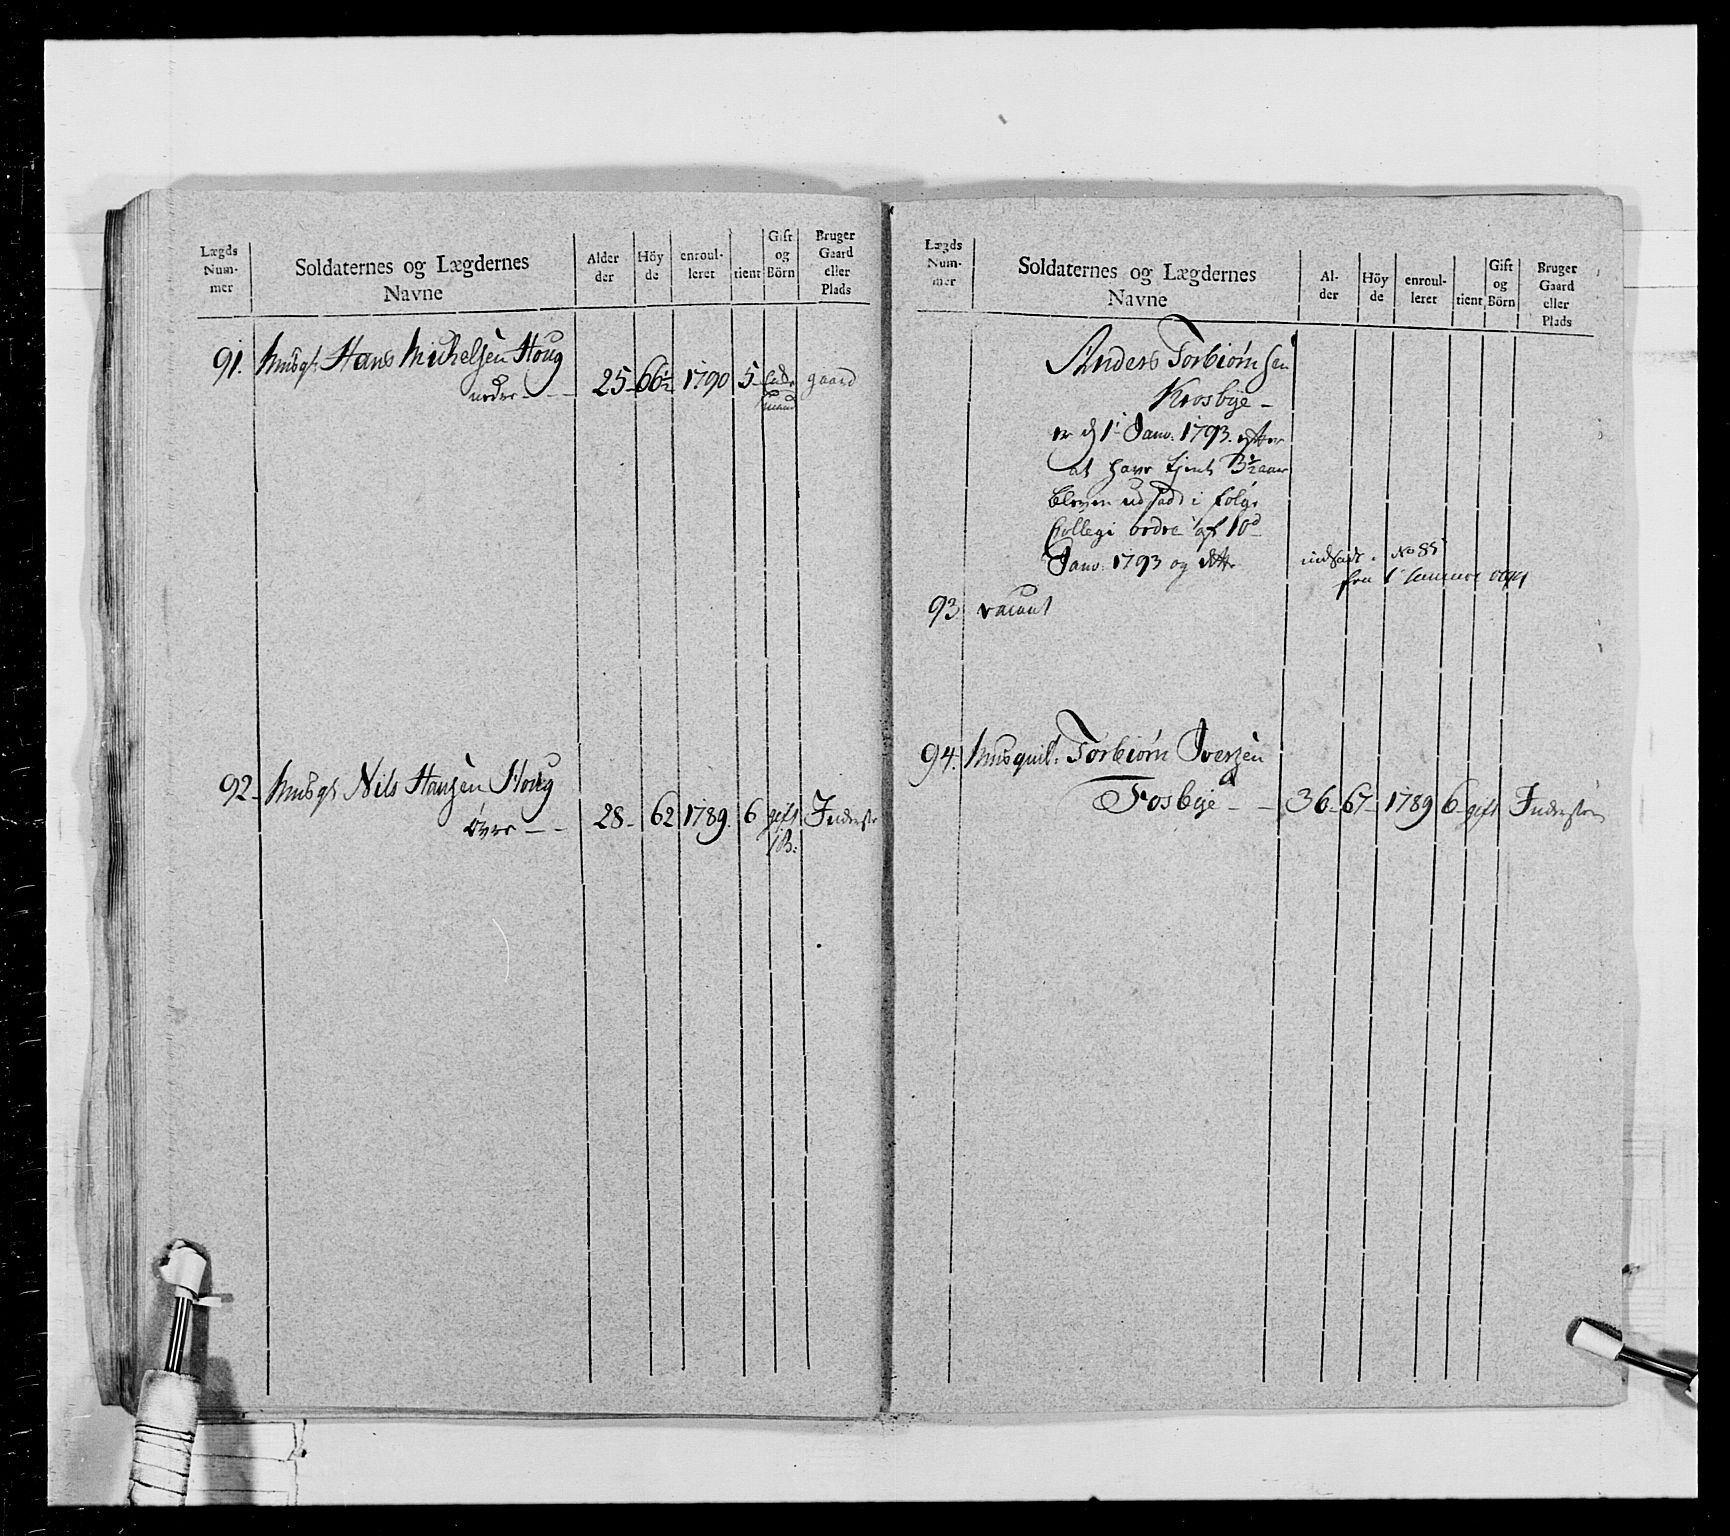 Lægds
Num-
mer
Soldaternes og Lægdernes
Navne
Alder
der
Höy
de
enroul-
leret
tient
Gift
og
Börn
Bruger
Gaard
eller
Plads
91. Musqt. Hans Michelsen Houg
nedre - - - 25 - 66½ 1790 5 - Enke gaard
mand
92. Musqt Nils Hansen Houg
Øvre - - 28 - 62 1789. 6 gift Inderste
1 B:
Lægds
Num-
mer
Soldaternes og Lægdernes
Navne
Al-
der
Höy
de
enroul-
leret
tient
Gift
og
Börn
Bruger
Gaard
eller
Plads
Anders Torbiørnsen
Krosbye -
er d 1 Janv. 1793. efter
at have tjent 3½ aar
bleven udsadt i følge
Collegi ordre af 10d
Janv. 1793 og dette indsadt No 85
fra
93. vacant
94. Musquit. Torbiørn Iversen
Fosbye - - 36 - 67 - 1789 6 - gift Inderste